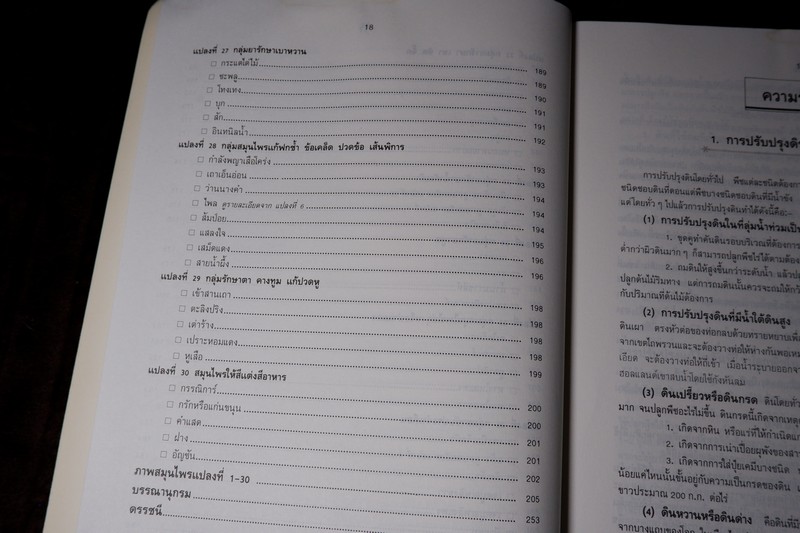 18
แปลงที่ 27 กลุ่มยารักษาเบาหวาน
☐ กระแตไต่ไม้ 189
☐ ชะพลู 189
☐ โทงเทง 190
☐ บุก 191
☐ สัก 191
☐ อินทนิลน้ำ 192
แปลงที่ 28 กลุ่มสมุนไพรแก้ฟกช้ำ ข้อเคล็ด ปวดข้อ เส้นพิการ
☐ กำลังพญาเสือโคร่ง 193
☐ เถาเอ็นอ่อน 193
☐ ว่านนางคำ 194
☐ ไพล ดูรายละเอียดจาก แปลงที่ 6 194
☐ ส้มป่อย 194
☐ แสลงใจ 195
☐ เสม็ดแดง 196
☐ สายน้ำผึ้ง 196
แปลงที่ 29 กลุ่มรักษาตา คางทูม แก้ปวดหู
☐ เข้าสานเถา 198
☐ ตะลิงปริง 198
☐ เต่าร้าง 198
☐ เปราะหอมแดง 198
☐ หูเสือ 199
แปลงที่ 30 สมุนไพรให้สีแต่งสีอาหาร
☐ กรรณิการ์ 200
☐ กรักหรือแก่นขนุน 200
☐ คำแสด 201
☐ ฝาง 201
☐ อัญชัน 202
ภาพสมุนไพรแปลงที่ 1-30 205
บรรณานุกรม 253
ดรรชนี
1. การปรับปรุงดิน
การปรับปรุงดินโดยทั่วไป พืชแต่ละชนิดต้องการ
ชนิดชอบดินที่ดอนแต่พืชบางชนิดชอบดินที่มีน้ำขัง
แต่โดยทั่ว ๆ ไปแล้วการปรับปรุงดินทำได้ดังนี้คือ:-
(1) การปรับปรุงดินในที่ลุ่มน้ำท่วมเป็น
1. ขุดคูทำคันดินรอบบริเวณที่ต้องการ
ต่ำกว่าผิวดินมาก ๆ ก็สามารถปลูกพืชไร่ได้ตามต้อง
2. ถมดินให้สูงขึ้นกว่าระดับน้ำ แล้ว
ปลูกต้นไม้ริมทาง แต่การถมดินนั้นควรจะถมให้
กับปริมาณที่ต้นไม้ต้องการ
(2) การปรับปรุงดินที่มีน้ำใต้ดินสูง
ดินเผา ตรงหัวต่อของท่อกลบด้วยทรายหยาบเพื่อ
จากเขตไถพรวนและจะต้องวางท่อให้ห่างกันพอเหมาะ
เอียด จะต้องวางท่อให้ถี่เข้า เมื่อน้ำระบายออก
ฮอลแลนด์เขาสบน้ำโดยใช้กังหันลม
(3) ดินเปรี้ยวหรือดินกรด ดินโดยทั่ว
มาก จนปลูกพืชอะไรไม่ขึ้น ดินกรดนี้เกิดจากเหตุ
1. เกิดจากหิน หรือแร่ที่ให้กำเนิด
2. เกิดจากการเน่าเปื่อยผุพังของ
3. เกิดจากการใส่ปุ๋ยเคมีบางชนิด
น้อยแค่ไหนนั้นขึ้นอยู่กับความเป็นกรดของดิน
ขาวประมาณ 200 ก.ก. ต่อไร่
(4) ดินหวานหรือดินด่าง คือดินที่